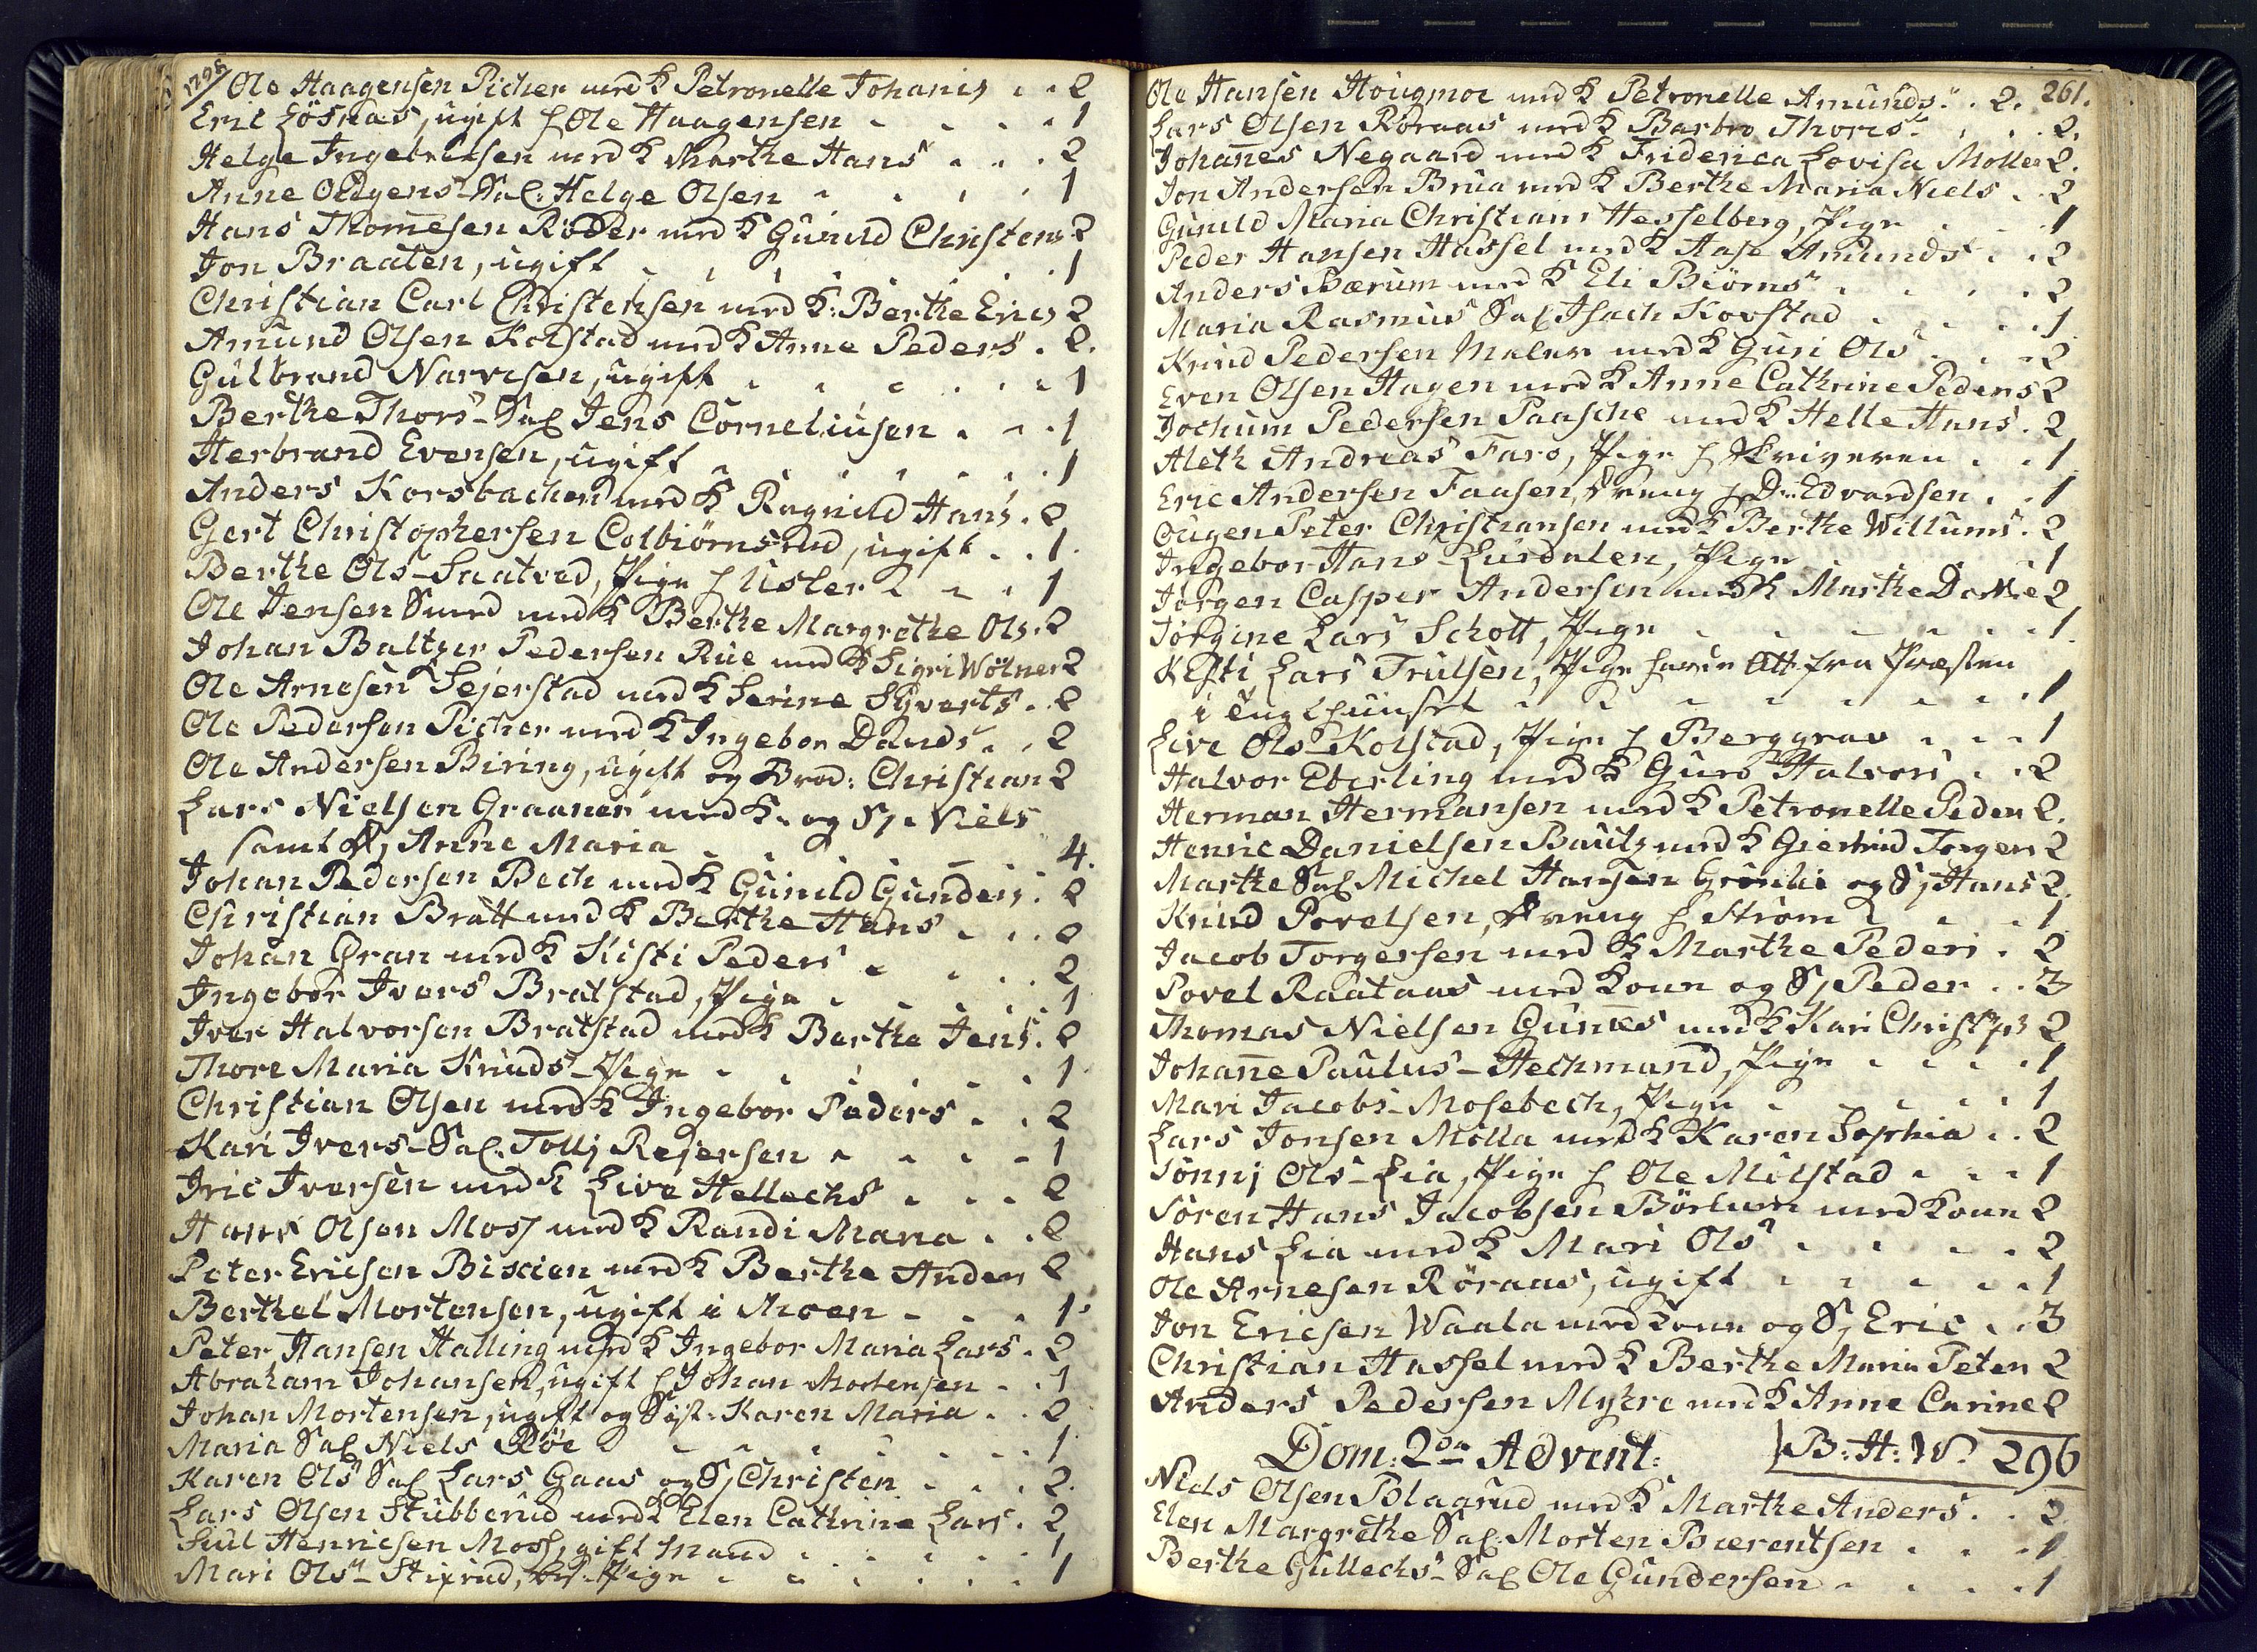 1798
Ole Haagensen Picher med K Petronelle Johanis . . 2
Eric Lösnæs, ugift h Ole Haagensen . . . . 1
Helge Ingebretsen med K Marthe Hans . . . 2
Anne Oudgens Sal: Helge Olsen . . . . 1
Hans Thomesen Röder med K Gunild Christens 2
Jon Braaten, ugift . . . . . 1
Christian Carl Christensen med K: Berthe Erics 2
Amund Olsen Kolstad med K Anne Peders . 2.
Gulbrand Narvesen, ugift . . . . . 1
Berthe Thors - Sal Jens Corneliusen . . . 1
Herbrand Evensen, ugift . . . . . 1
Anders Korsbachen med K Ragnild Hans . 2
Gert Christophersen Colbiörnsrud, ugift . . 1.
Berthe Ols - Saatved, Pige h Usler . . . 1
Ole Jensen Smed med K Berthe Margrethe Ols. 2
Johan Baltzer Pedersen Rue med K Sigri Wölner 2
Ole Arnesen Sejerstad med K Serine Syverts . 2
Ole Pedersen Picher med K Ingebor Davids . . 2
Ole Andersen Biring, ugift og Brod: Christian 2
Lars Nielsen Graaner med K. og Sj. Niels
samt Anne Maria . . . . 4.
Johan Pedersen Bech med K Gunild Gunders . 2
Christian Bratt med K Berthe Hans . . . 2
Johan Gran med K Kisti Peders . . . 2
Ingebor Ivers Bratstad, Pige . . . . . 1
Iver Halvorsen Bratstad med K Berthe Jens . 2
Thore Maria Knuds - Pige . . . . . . 1
Christian Olsen med K Ingebor Peders . . 2
Kari Ivers - Sal. Tollj Rejersen . . . . 1
Iric Iversen med K Live Hellechs . . . 2
Hans Olsen Moss med K Randi Maria . . 2
Peter Ericsen Bixien med K Berthe Anders 2
Berthel Mortensen, ugift i Moen . . . 1.
Peter Hansen Halling med K Ingebor Maria Lars . 2
Abraham Johansen, ugift h Johan Mortensen . . 1
Johan Mortensen, ugift og Syst: Karen Maria . . 2
Maria Sal Niels Röe . . . . . . 1
Karen Ols Sal Lars Gaas og Sj Christen . . . 2.
Lars Olsen Stubberud med K Elen Cathrine Lars . 2
Juul Henricsen Moss, gift Mand . . . . . 1
Mari Ols - Stixrud, Pige . . . . . 1
261.
Ole Hansen Hougmoe med K Petronelle Amunds . 2.
Lars Olsen Röraas med K Barbro Thores . . . 2.
Johanes Negaard med K Friderica Lovisa Moller 2.
Jon Andersen Brua med K Berthe Maria Niels . . 2
Gunild Maria Christians Hesselberg, Pige . . . 1
Peder Hansen Hassel med K Aase Amunds . . 2
Anders Bærum med K Eli Biörns . . . . 2
Maria Rasmus Sal Isach Korstad . . . . 1
Knud Pedersen Maler med K Guri Ols . . . 2
Even Olsen Hagen med K Anne Cathrine Peders 2
Jochum Pedersen Paasche med K Helle Hans . 2
Aleth Andreas Farö, Pige h Skriveren . . 1
Eric Andersen Faasen, Dreng h Dr: Edvardsen . . 1
Ougen Peter Christiansen med K Berthe Willums . 2
Ingebor Hans - Lurdalen, Pige . . . 1
Jörgen Casper Andersen med K Marthe Dorthe 2
Jörgine Lars Schott, Pige . . . . . 1.
Kisti Lars Trulsen, Pige Att fra Præsten
i . . . . . . . 1
Live Ols - Kolstad, Pige h Berggrav . . . 1
Halvor Eberling med K Guro Halvors . . 2
Herman Hermansen med K Petronelle Peders 2.
Henric Danielsen Bautz med K Giertrud Torgers 2
Marthe Sal Michel Hansen Grönlie og Sj Hans 2.
Knud Povelsen, Dreng h Ström . . . 1.
Jacob Torgersen med K Marthe Peders . 2
Povel Raataas med Kone og Sj Peder . . 3
Thomas Nielsen Gunæs med K Kari Christophs 2
Johane Paulus - Hechmand, Pige . . . . 1
Mari Jacobs - Mosebech, Pige . . . . . 1
Lars Jonsen Mölla med K Karen Sophia . . 2
Sönnj Ols - Lia, Pige h Ole Milstad . . . 1
Sören Hans Jacobsen Börlum med Kone 2
Hans Lia med K Mari Ols . . . . 2
Ole Arnesen Röraas, ugift . . . . . 1
Jon Ericsen Waala med Kone og Sj Eric . . 3
Christian Hassel med K Berthe Maria Peters 2
Anders Pedersen Myhre med K Anne Carine 2
Dom: 2da Advent: B: H: W. 296
Niels Olsen Blaarud med K Marthe Anders . . 2
Elen Margrethe Sal. Morten Bærentsen . . . 1
Berthe Gullechs - Sal Ole Gundersen . . . . 1